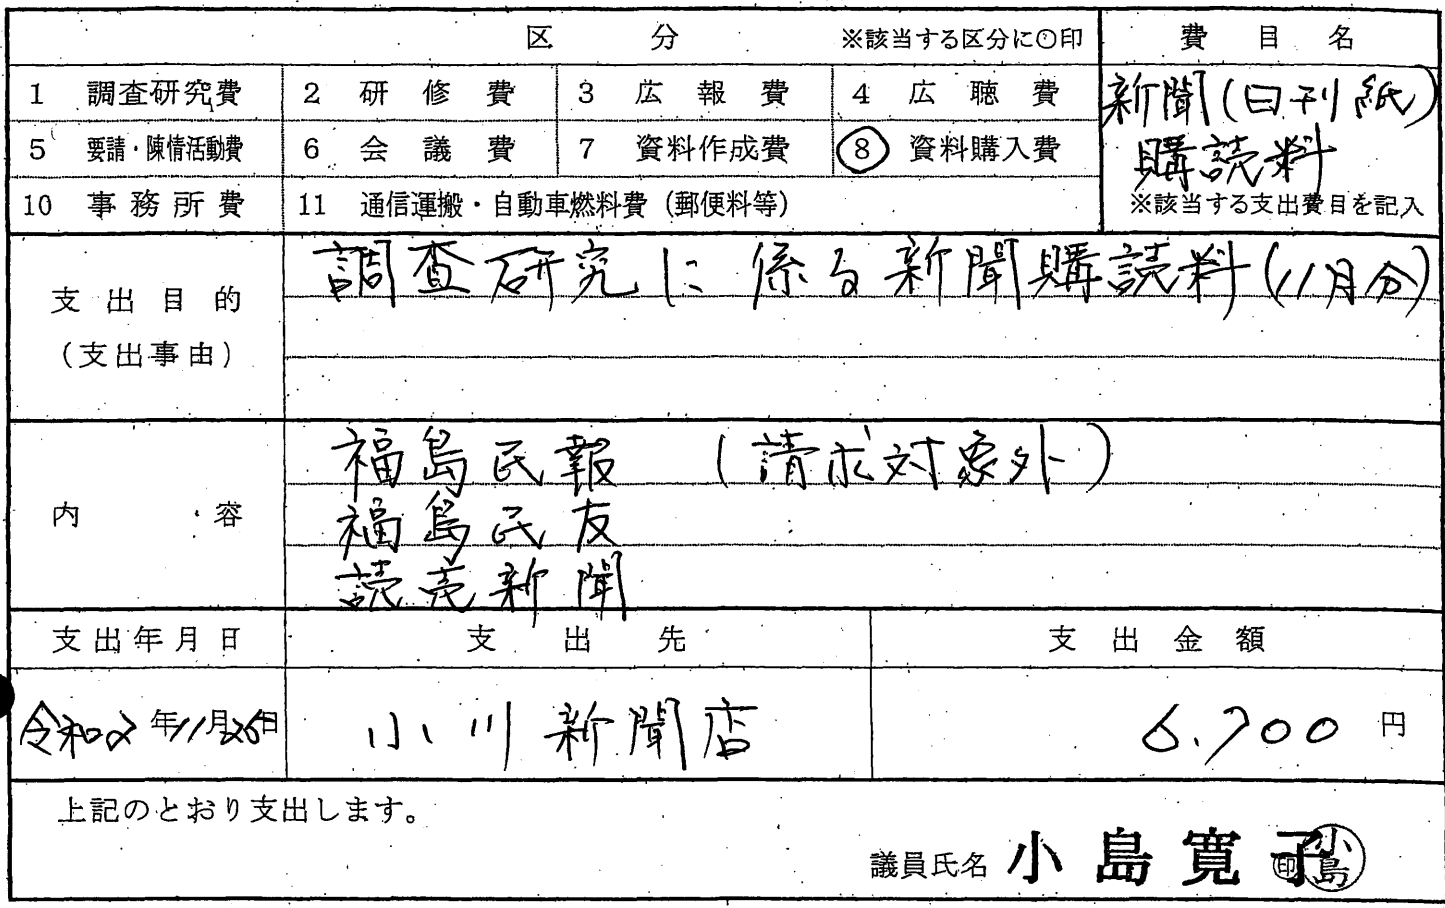 区分 ※該当する区分に○印 費目名
1 調査研究費 2 研修費 3 広報費 4 広聴費 新聞(日刊紙)
5 要請・陳情活動費 6 会議費 7 資料作成費 ⑧ 資料購入費 購読料
10 事務所費 11 通信運搬・自動車燃料費(郵便料等) ※該当する支出費目を記入
支出目的 調査研究に係る新聞購読料(11月分)
(支出事由)
福島民報 (請求対象外)
内容 福島民友
読売新聞
支出年月日 支出先 支出金額
令和2年11月26日 小川新聞店 6.700円
上記のとおり支出します。
議員氏名 小島寛子 印 小島